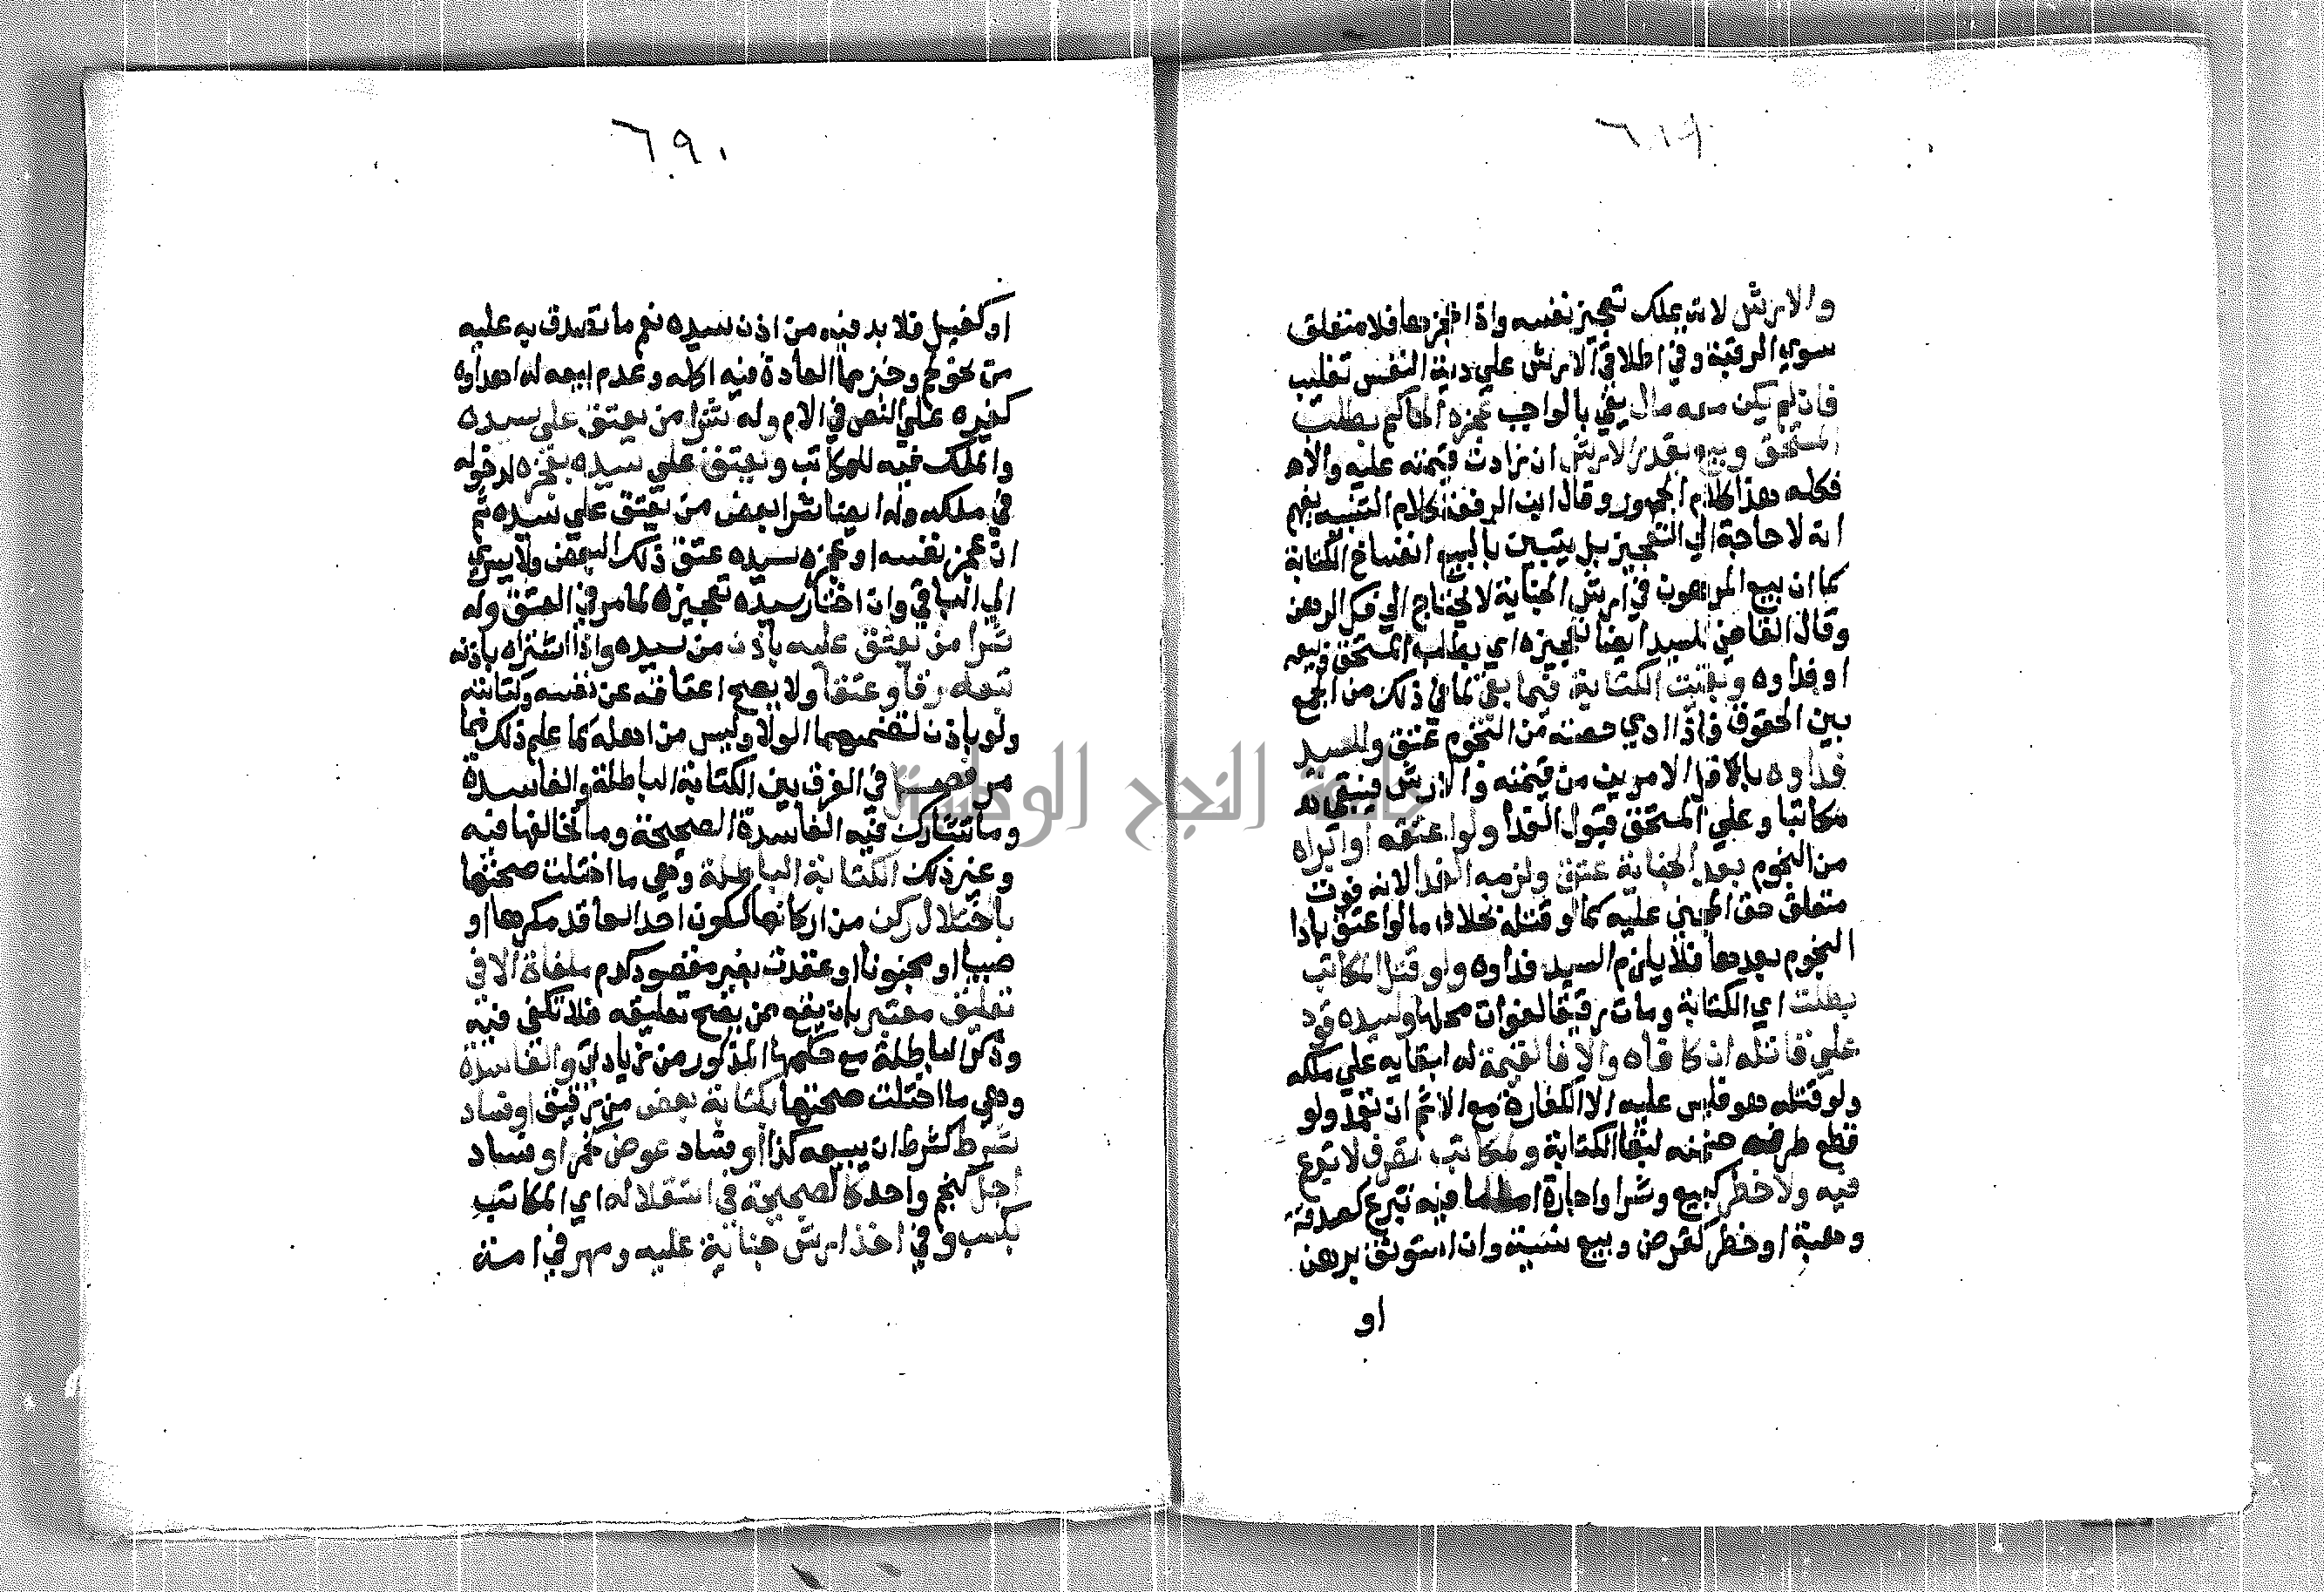 ٦٨٩
والارش لانه يملك تعجيز نفسه واذا عجزها فلا متعلق
سوي الرقبة وفي اطلاق الارش علي دية النفس تغليب
فان لم يكن معه مال يفي بالواجب عجزه الحاكم بطلب
المستحق وبيع بقدر الارش ان زادت قيمته عليه والا
فكله هذا كلام الجمهور وقال ابن الرفعة كلام التنبيه يفهم
انه لا حاجة الي التعجيز بل يتبين بالبيع انفساخ الكتابة
كما ان بيع المرهون في ارش الجناية لا يحتاج الي فك الرهن
وقال القاضي للسيد ايضا تعجيزه اي بطلب المستحق وبيعه
او فداوه وبقيت الكتابة فيما بقي لما في ذلك من الجمع
بين الحقوق فاذا ادي حصته من النجوم عتق وللسيد
فداوه بالاقل الامرين من قيمته والارش فيبقي
مكاتبا وعلي المستحق قبول الفدا ولو اعتقه او ابراه
من النجوم بعد الجناية عتق ولزمه الفدا لانه فوت
متعلق حق المجني عليه كما لو قتله بخلاف ما لو اعتق بادا
النجوم بعدها فلا يلزم السيد فداوه ولو قتل المكاتب
بطلت اي الكتابة ومات رقيقا لفوات محلها ولسيده قود
علي قاتله ان كافاه والا فالقيمة له لبقايه علي ملكه
ولو قتله هو فليس عليه الا الكفارة مع الاثم ان تعمد ولو
قطع طرفه ضمنه لبقا الكتابة ولمكاتب تصرف لا تبرع
فيه ولا خطر كبيع وشرا واجارة اما ما فيه تبرع كصدقة
وهبة او خطر كقرض وبيع نسية وان استوثق برهن
او
٦٩٠
او كفيل فلا بد فيه من اذن سيده نعم ما تصدق به عليه
من نحو لحم وخبز مما العادة فيه اكله وعدم بيعه له اهداوه
كغيره علي النص في الام وله شرا من يعتق علي سيده
والملك فيه للمكاتب ويعتق علي سيده بعجزه لدخوله
في ملكه وله ايضا شرا بعض من يعتق علي سيده ثم
ان عجز نفسه او عجزه سيده عتق ذلك البعض ولا يسري
الي الباقي وان اختار سيده تعجيزه لما مر في العتق وله
شرا من يعتق عليه باذن من سيده واذا اشتراه باذنه
تبعه رقا وعتقا ولا يصح اعتاقه عن نفسه وكتابته
ولو باذن لتضمنهما الولا وليس من اهله كما علم ذلك مما
مر فصل في الفرق بين الكتابة الباطلة والفاسدة
وما تشارك فيه الفاسدة الصحيحة وما تخالفها فيه
وغير ذلك الكتابة الباطلة وهي ما اختلت صحتها
باختلال ركن من اركانها لكون احد العاقد مكرها او
صبيا او مجنونا او عقدت بغير مقصود كدم ملغاة الا في
تعليق معتبر بان يقع ممن يصح تعليقه فلا تلغي فيه
وذكر الباطلة مع حكمها المذكور من زيادتي والفاسدة
وهي ما اختلت صحتها بكتابة بعض من رقيق او فساد
شرط كشرط ان يبيعه كذا او فساد عوض كخمر او فساد
اجل كنجم واحد كالصحيحة في استقلاله اي المكاتب
بكسب وفي اخذ ارش جناية عليه ومهر في امته
جامعة النجاح الوطنية